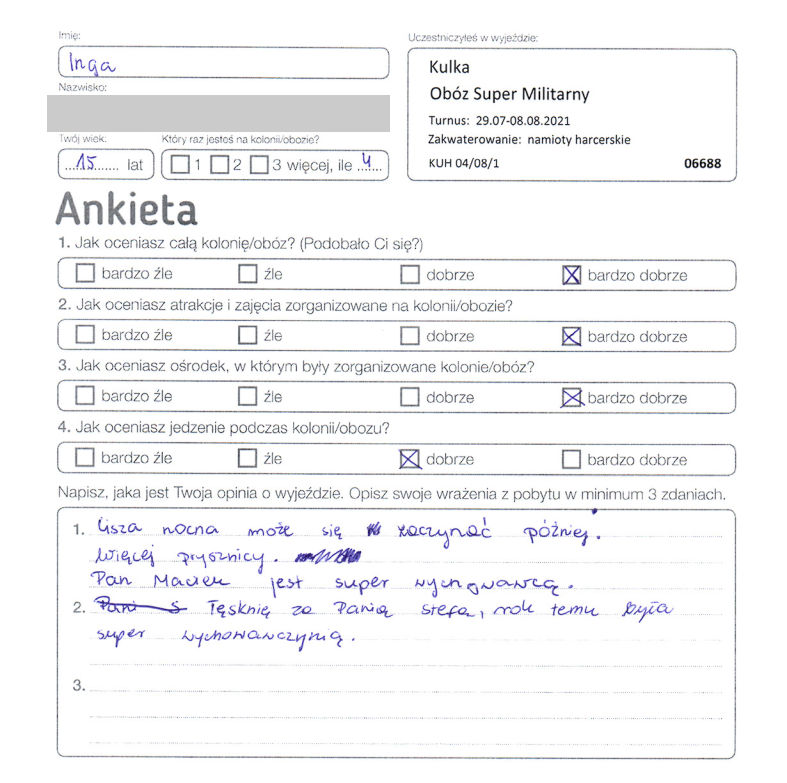 Imię:
Inga
Nazwisko:
Twój wiek:
15 lat
Który raz jesteś na kolonii/obozie?
1 2 3 więcej, ile 4
Uczestniczyłeś w wyjeździe:
Kulka
Obóz Super Militarny
Turnus: 29.07-08.08.2021
Zakwaterowanie: namioty harcerskie
KUH 04/08/1 06688
Ankieta
1. Jak oceniasz całą kolonię/obóz? (Podobało Ci się?)
bardzo źle źle dobrze bardzo dobrze
2. Jak oceniasz atrakcje i zajęcia zorganizowane na kolonii/obozie?
bardzo źle źle dobrze bardzo dobrze
3. Jak oceniasz ośrodek, w którym były zorganizowane kolonie/obóz?
bardzo źle źle dobrze bardzo dobrze
4. Jak oceniasz jedzenie podczas kolonii/obozu?
bardzo źle źle dobrze bardzo dobrze
Napisz, jaka jest Twoja opinia o wyjeździe. Opisz swoje wrażenia z pobytu w minimum 3 zdaniach.
1. Cisza nocna może się zaczynać później.
Więcej prysznicy.
Pan Maciek jest super wychowawcą.
2. Pani S Tęsknię za Panią Stefą, rok temu była
super wychowawczynią.
3.